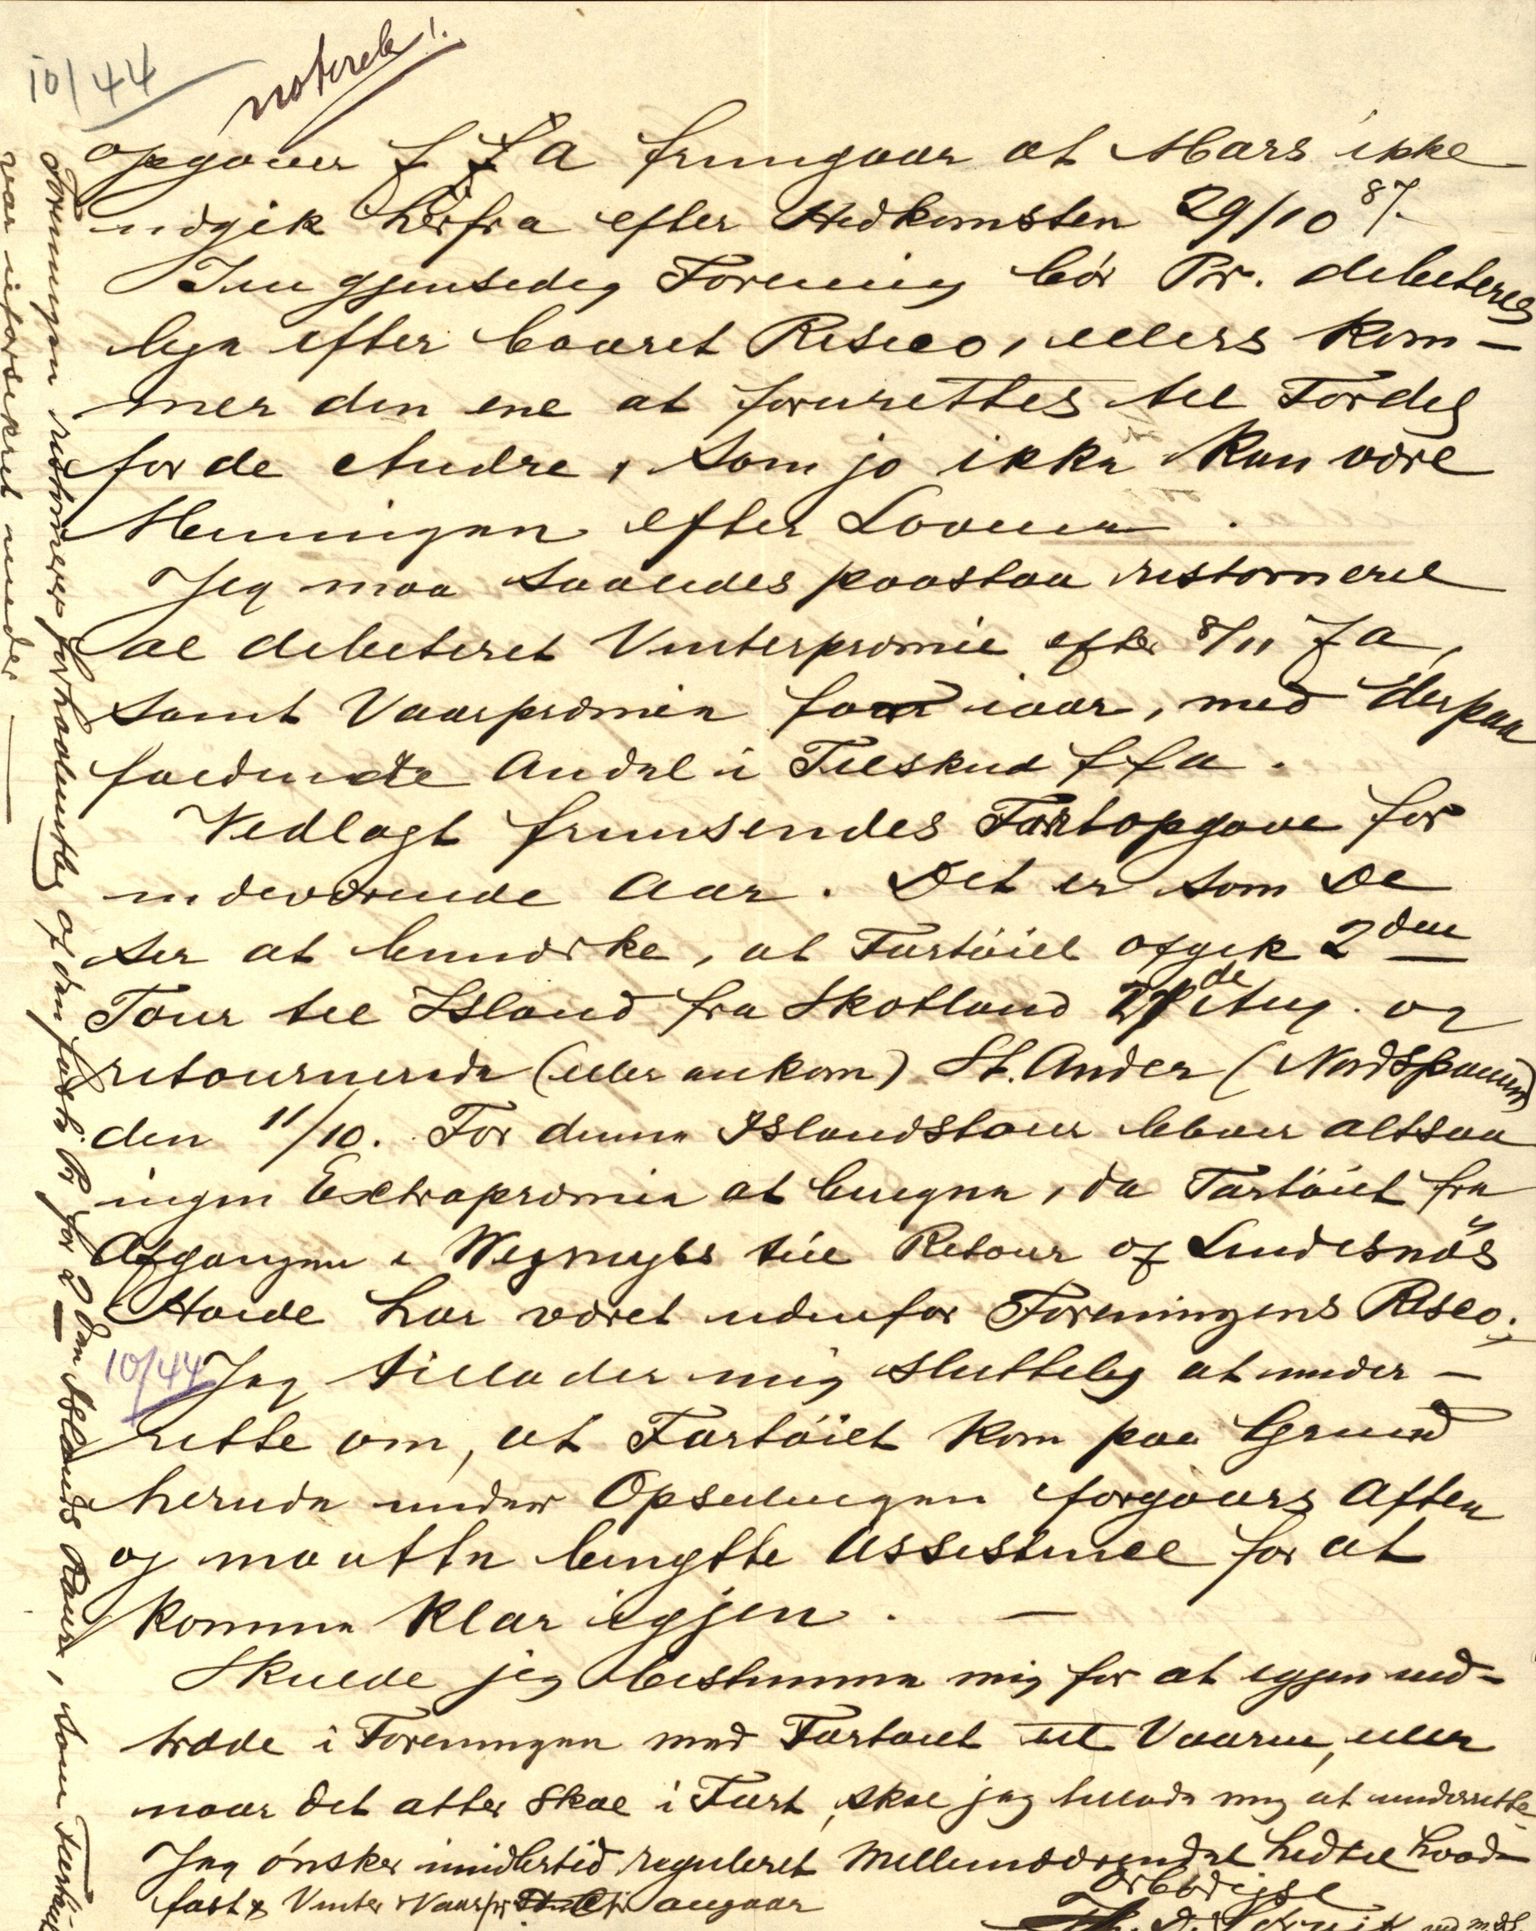 10/44
noteret!
opgaver f f A fremgaar at Mars ikke
udgik herfra efter Hidkomsten 29/10 87.
I en gjensidig Forening bör Pr. debiteres
lige efter baaret Risico, ellers kom-
mer den ene at forurettes til Fordel
for de Andre, som jo ikke kan være
Meningen efter Lovene.
Jeg maa saaledes paastaa ristorneret
al debiteret Vinterpræmie efter 8/11 f A,
samt Vaarpræmien for iaar, med derpaa
faldende Andel i Tilskud f f A.
Vedlagt fremsendes Fartopgave for
indeværende Aar. Det er som De
ser at bemærke, at Fartöiet afgik 2den
Tour til Island fra Skotland 27de Aug. og
retournerede (eller ankom) St. Ander (Nordspanien)
den 11/10. For denne Islandstour bliver altsaa
ingen Extrapræmie at beregne, da Fartöiet fra
Afgangen i Wegmyss til Retour og Lindesnæs
Höide har været udenfor Foreningens Risco.
10/44
Jeg tillader mig sluttelig at under-
rette om, at Fartöiet kom paa Grund
herude under Opseilingen forgaars Aften
og maatte benytte Assistance for at
komme klar igjen. —
Skulde jeg bestemme mig for at igjen ind-
træde i Foreningen med Fartöiet til Vaaren, eller
naar det atter skal i Fart, skal jeg tillade mig at underrette
Jeg önsker imidlertid reguleret Mellemværendet hidtil hvad
fast & Vinter & Vaarpr angaar
Ærbödigst
Foreningen ristornerer forhaabentlig og den faste Pr for 2den Islands Reise, som Fartöiet
var uforsikret under —